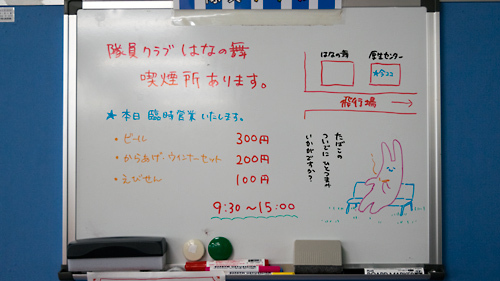 隊員クラブ はなの舞
喫煙所 あります。
★本日 臨時営業 いたします。
・ビール 300円
・からあげ・ウインナーセット 200円
・えびせん 100円
9:30〜15:00
はなの舞
厚生センター
★ココ
飛行場 →
たばこの
ついでに ひとつまみ
いかがですか？